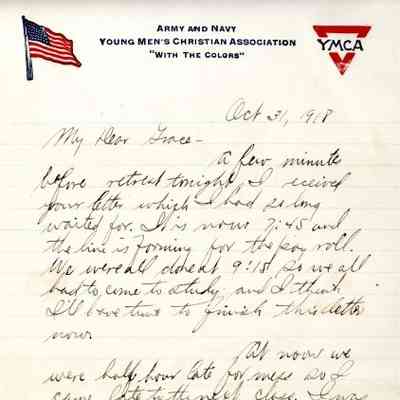 ARMY AND NAVY
YOUNG MEN'S CHRISTIAN ASSOCIATION
"WITH THE COLORS"
YMCA
Oct 31, 1918
My Dear Grace-
A few minutes
before retreat tonight, I received
your letter which I had so long
waited for. It is now 7:45 and
the line is forming for the pay roll.
We were all done at 9:15 so we all
had to come to study and I think
I'll have time to finish this letter
now.
At noon we
were half hour late for mess so I
came late to the next class. I was